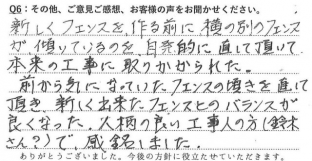 Q6:その他、ご意見ご感想、お客様の声をお聞かせください。
新しくフェンスを、作る前に横の別のフェンス
が傾いているのを、自発的に直して頂いて
本来の工事に取りかかられた。
前から気になっていたフェンスの傾きを直して
頂き、新しく出来たフェンスとのバランスが
良くなった。人柄の良い工事人の方(鈴木
さん?)で、感銘しました。
ありがとうございました。今後の方針に役立たせていただきます。